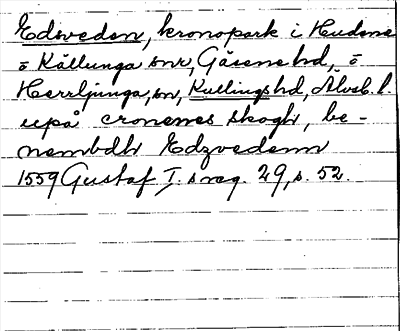 Edsveden, kronopark i Hudene
o Källunga snr, Gäsene hd, o
Herrljunga, sn, Kullings hd, Älvsb. l.
uupå cronenes skogh, be-
nembdh Edzvedenn
1559 Gustaf I:s reg. 29, s. 52.